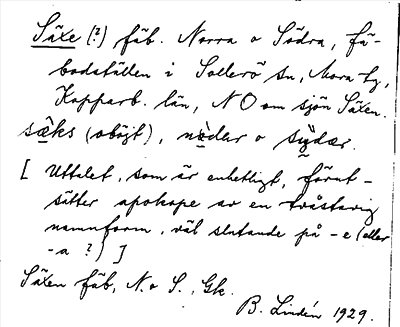 Säxe (?) fäb. Norra o Södra, fä-
bodställen i Sollerö sn, Mora tg,
Kopparb. län, NO om sjön Säxen.
sæks (oböjt), nòdar o sỳdær.
[ Uttalet, som är enhetligt, förut-
sätter apokope av en tvåstavig
namnform, väl slutande på -e (eller
-a ?) ]
Säxen fäb, N. o S., Gk.
B. Lindén 1929.